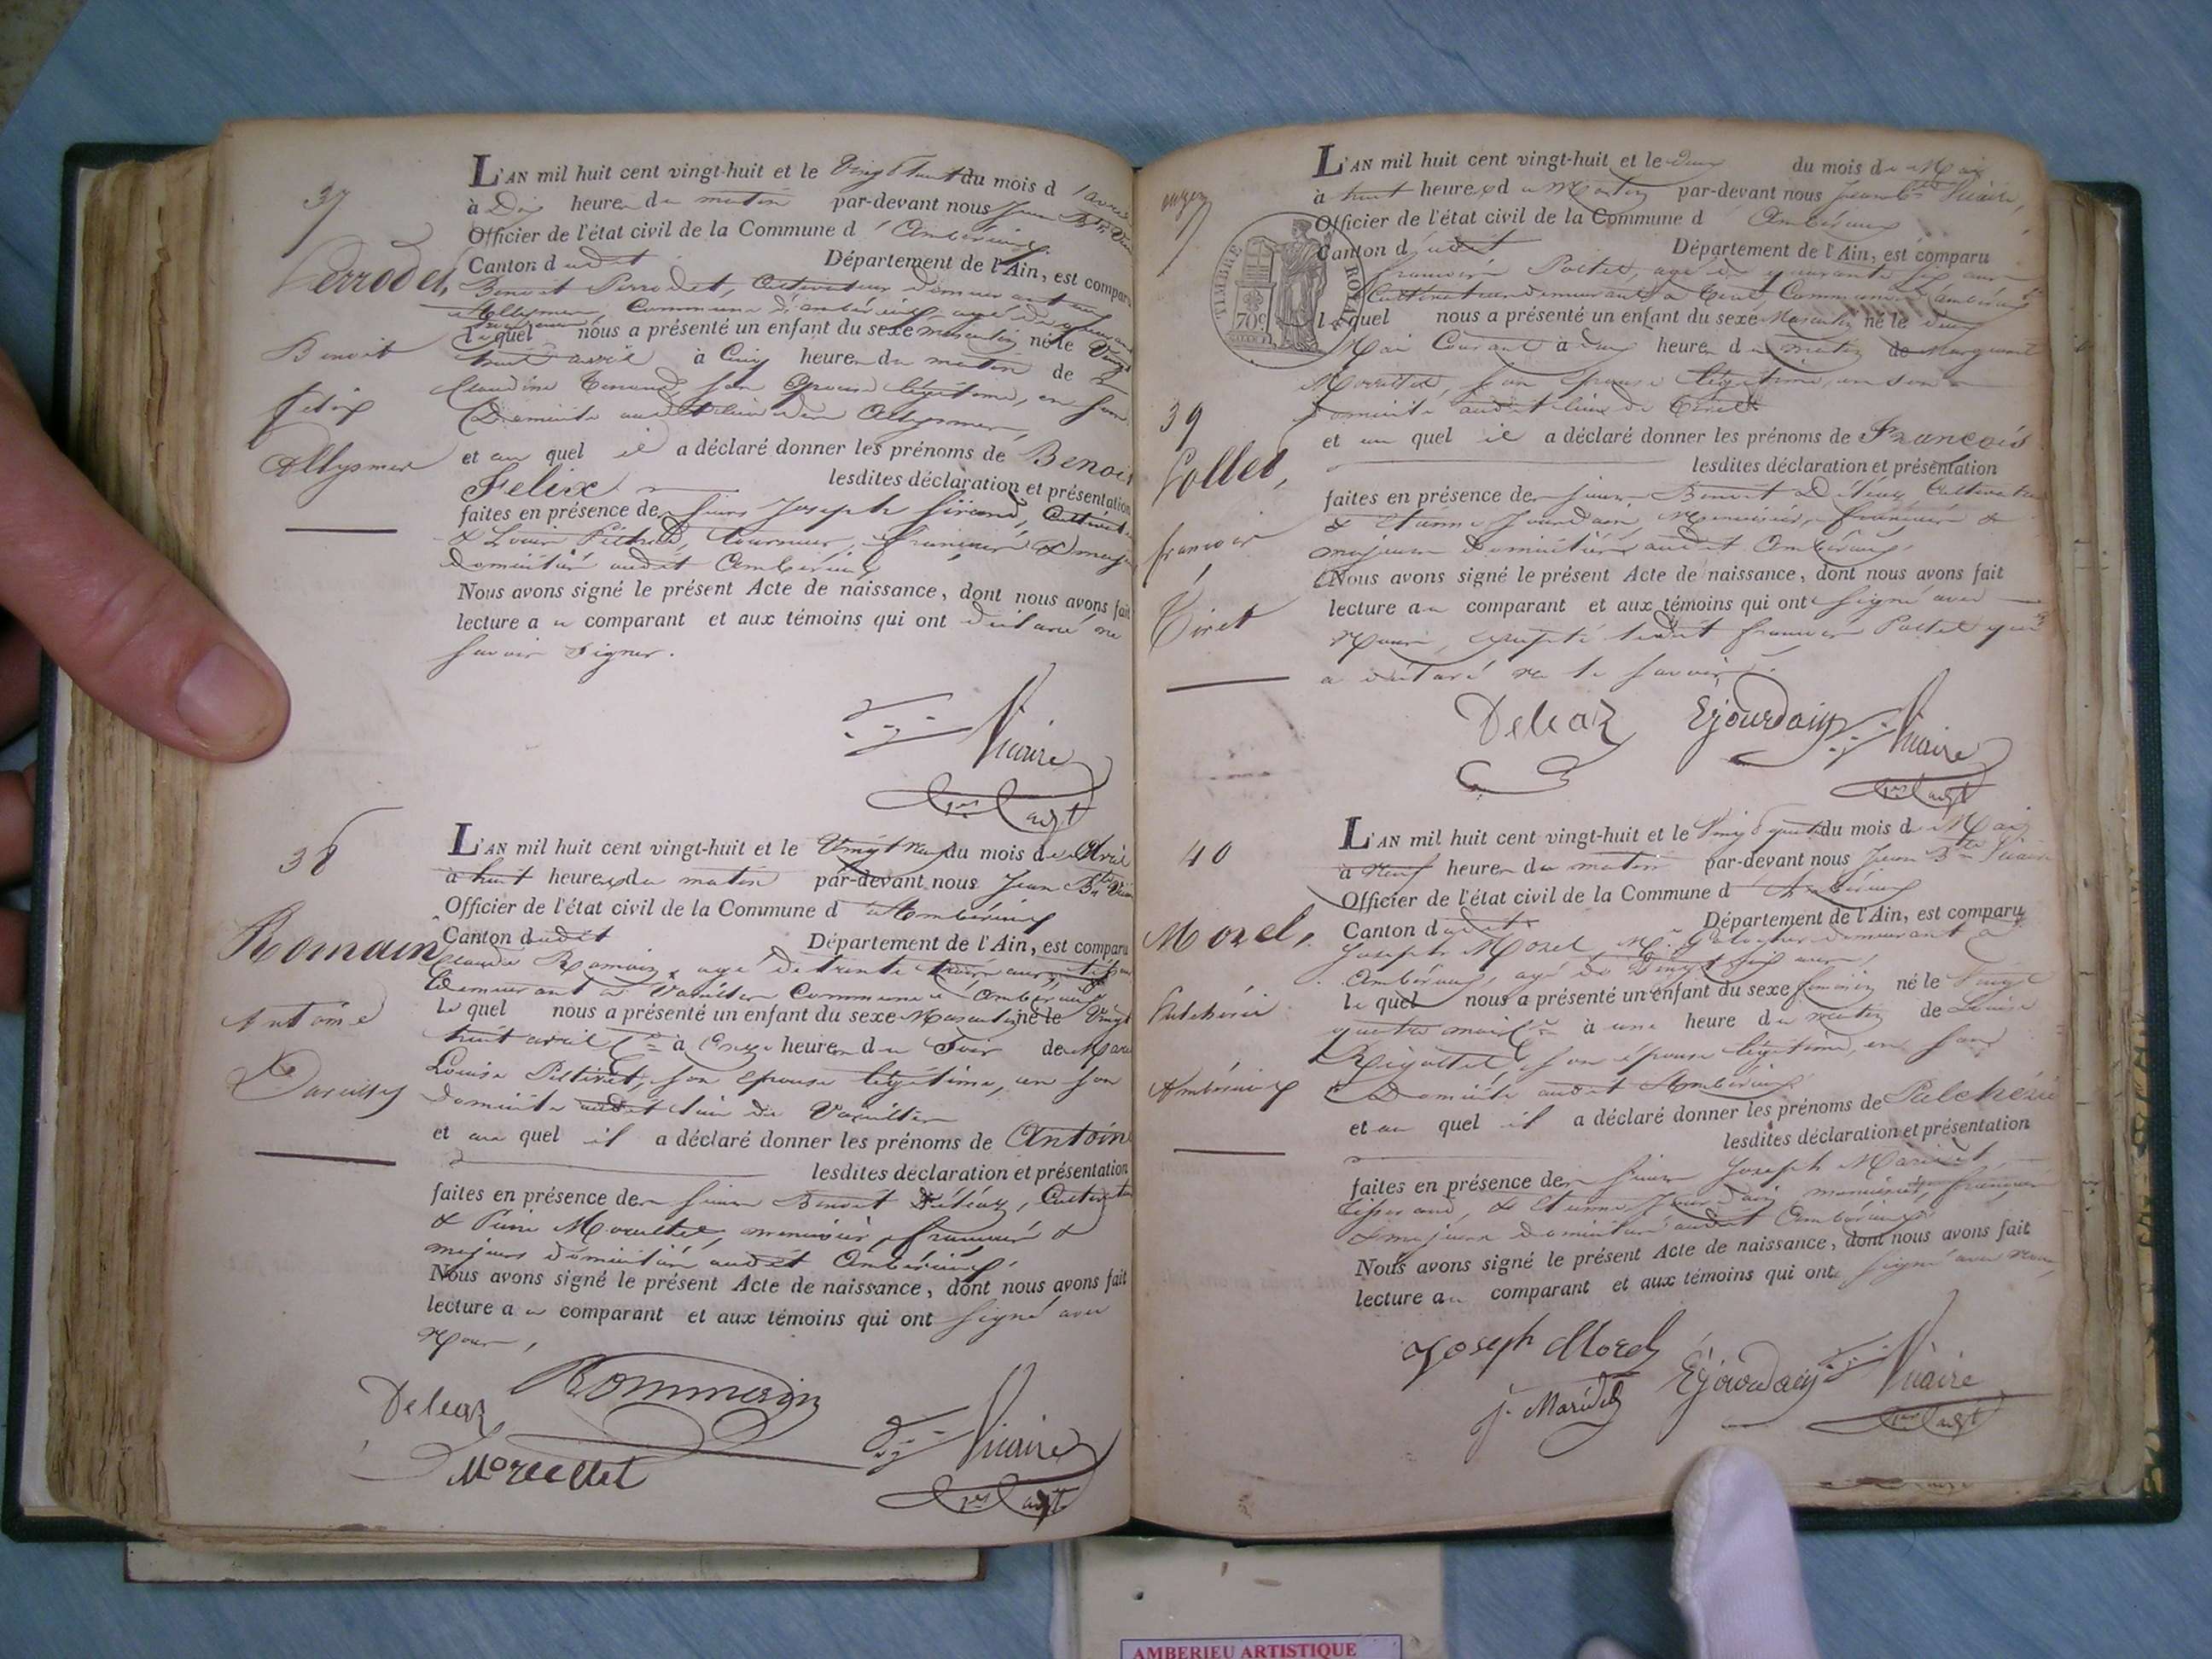 37
L'AN mil huit cent vingt-huit et le Vingt huit du mois d'avril
à Dix heure du matin par-devant nous Jean Bte Vicaire
Officier de l'état civil de la Commune d'Ambérieux
Canton dudit Département de l'Ain, est comparu
Perrodet,
Benoit Perrodet, Cultivateur demeurant au
Allymes, Commune d'ambérieux, agé de
lequel nous a présenté un enfant du sexe masculin né le Vingt
Benoit
huit avril à Cinq heure du matin de
Claudine son Epouse légitime, en son
felix
Domicile audit lieu des Allymes,
Allymes
et auquel il a déclaré donner les prénoms de Benoit
Felix lesdites déclaration et présentation
faites en présence des sieurs Joseph Sirand, Cultivateur
& Louis tourneur, français & majeurs
domiciliés audit Ambérieux
Nous avons signé le présent Acte de naissance, dont nous avons fait
lecture au comparant et aux témoins qui ont déclaré ne
savoir signer.
Vicaire
38
L'AN mil huit cent vingt-huit et le Vingt neuf du mois de Avril
à huit heures du matin par-devant nous Jean Bte Vicaire
Officier de l'état civil de la Commune d'Ambérieux
Canton dudit Département de l'Ain, est comparu
Romain
Claude Romain, agé de trente
demeurant à Vareilles Commune d'Ambérieux
Le quel nous a présenté un enfant du sexe Masculin né le Vingt
Antoine
huit avril Ct à Onze heure du Soir de Marie
Louise son Epouse légitime, en son
Vareilles
Domicile audit lieu de Vareilles
et auquel il a déclaré donner les prénoms de Antoine
lesdites déclaration et présentation
faites en présence des sieurs Benoit Déléaz, Cultivateur
& Pierre Morellet, menuisier, français &
majeurs domiciliés audit Ambérieux,
Nous avons signé le présent Acte de naissance, dont nous avons fait
lecture au comparant et aux témoins qui ont signé avec
Nous,
Deleaz Rommain
Morellet Vicaire
L'AN mil huit cent vingt-huit et le deux du mois de Mai
onze
à huit heures du Matin par-devant nous Jean Bte Vicaire,
Officier de l'état civil de la Commune d'Ambérieux
Canton dudit Département de l'Ain, est comparu
TIMBRE ROYAL
70c
françois Pollet, agé de quarante six ans
Cultivateur demeurant à Tiret, Commune d'Ambérieux
lequel nous a présenté un enfant du sexe Masculin né le deux
Mai Courant à heure du matin de Marguerite
Morellet, son Epouse légitime, en son
domicile audit lieu de Tiret
39
et auquel il a déclaré donner les prénoms de François
Pollet,
lesdites déclaration et présentation
faites en présence des sieurs Benoit Déléaz Cultivateur
& Etienne Jourdain, Menuisier, français &
françois
majeurs domiciliés audit Ambérieux,
Nous avons signé le présent Acte de naissance, dont nous avons fait
Tiret
lecture au comparant et aux témoins qui ont signé avec
Nous, excepté ledit françois Pollet qui
a déclaré ne le savoir.
Deleaz Ejourdain Vicaire
40
L'AN mil huit cent vingt-huit et le Vingt quatre du mois de Mai
à neuf heure du matin par-devant nous Jean Bte Vicaire
Officier de l'état civil de la Commune d'Ambérieux
Canton dudit Département de l'Ain, est comparu
Morel,
Joseph Morel, demeurant à
Ambérieux, agé de Vingt six ans,
le quel nous a présenté un enfant du sexe féminin né le Vingt
Pulchérie
quatre mai Ct à une heure du matin de Louise
Rigollet, son épouse légitime, en son
Ambérieux
Domicile audit Ambérieux
et au quel il a déclaré donner les prénoms de Pulchérie
lesdites déclaration et présentation
faites en présence des sieurs Joseph Maridet,
tisserand, & Etienne Jourdain menuisier, français
& majeurs domiciliés audit Ambérieux,
Nous avons signé le présent Acte de naissance, dont nous avons fait
lecture au comparant et aux témoins qui ont signé avec Nous,
Joseph Morel
J. Maridet Ejourdain Vicaire
AMBERIEU ARTISTIQUE